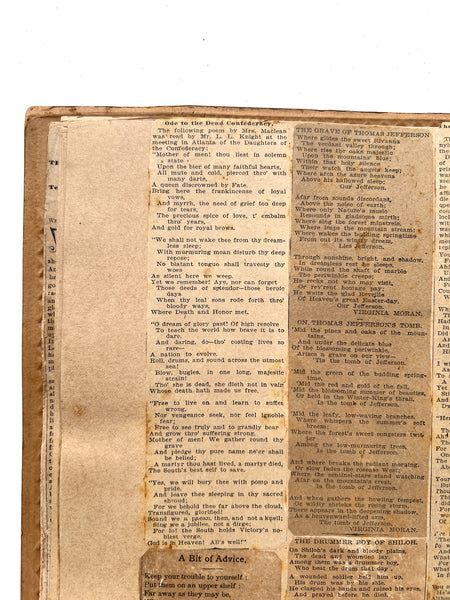 Ode to the Dead Confederacy.
The following poem by Mrs. Maclean
was read by Mr. L. L. Knight at the
meeting in Atlanta of the Daughters of
the Confederacy:
"Mother of men! thou liest in solemn
state
Upon the bier of many faithful hearts,
All mute and cold, pierced thro' with
many darts,
A queen discrowned by Fate.
Bring here the frankincense of loyal
vows,
And myrrh, the need of grief too deep
for tears,
The precious spice of love, t' embalm
thro' years,
And gold for royal brows.
"We shall not wake thee from thy dream-
less sleep;
With murmuring moan disturb thy deep
repose;
No bistant tongue shall travesty thy
woes
As silent here we weep.
Yet we remember! Aye, nor can forget
Those deeds of splendor—those heroic
days
When thy leal sons rode forth thro'
bloody ways,
Where Death and Honor met.
"O dream of glory past! O high resolve
To teach the world how brave it is to
dare.
And daring, do—tho' costing lives so
rare—
A nation to evolve.
Roll, drums, and sound across the utmost
sea!
Blow, bugles, in one long, majestic
strain!
Tho' she is dead, she dieth not in vain
Whose death hath made us free.
"Free to live on and learn to suffer
wrong,
Nor vengeance seek, nor feel ignoble
fear;
Free to see truly and to grandly bear
And grow thro' suffering strong.
Mother of men! We gather round thy
grave
And pledge thy pure name ne'er shall
be belied;
A martyr thou hast lived, a martyr died,
The South's best self to save.
"Yes, we will bury thee with pomp and
pride,
And leave thee sleeping in thy sacred
shroud;
For we behold thee far above the cloud,
Transfigured, glorified!
Sound we a paean, then, and not a knell;
Song we a jubilee, not a dirge;
For lo! the South holds Victory's no-
blest verge.
God is in Heaven! All's well!"
A Bit of Advice.
Keep your trouble to yourself;
Put them on an upper shelf;
Far away as they may be,
THE GRAVE OF THOMAS JEFFERSON
Where glides the sweet Rivanna
The verdant valley through;
Where rise the oaks majestic
Upon the mountains' blue;
Within that holy silence
Their watch the angels keep;
Where arch the azure heavens
Above his hallowed sleep,
Our Jefferson.
Afar from sounds discordant,
Above the noise of earth;
Where only Nature's music
Resounds in gladsome mirth;
Where sing the forest minstrels,
Where limps the mountain stream;
Where wakes the budding springtime
From out its wintry dream,
Lies Jefferson.
Through sunshine, bright, and shadow,
In dreamless rest he sleeps,
While round the shaft of marble
The periwinkle creeps;
He recks not who may visit,
Or reverent homage pay;
He waits the glad Reveille
Of Heaven's great Easter-day,
Our Jefferson.
VIRGINIA MORAN.
ON THOMAS JEFFERSON'S TOMB.
Mid the pines and oaks of the moun-
tains,
And under the delicate blue
Of the blossoming periwinkle,
Arises a grave on our view—
'Tis the tomb of Jefferson.
Mid the green of the budding spring-
time,
'Mid the red and gold of the fall,
Mid the blossoming summer of beauties,
Or held in the Winter-King's thrall,
Is the tomb of Jefferson.
Mid the leafy, low-waving branches,
Where whispers the summer's soft
breeze;
Where the forest's sweet songsters twit-
ter
Among the low-murmuring trees,
Is the tomb of Jefferson.
And where breaks the radiant morning,
Or slow fades the roseate West;
Where the sentinel-stars stand watching
Afar on the mountains crest,
Is the tomb of Jefferson.
And when gathers the howling tempest,
Or wildly shrieks the rising storm,
There appears in the deepening shadow,
As a heavenward-lifted arm,
The tomb of Jefferson.
VIRGINIA MORAN.
THE DRUMMER BOY OF SHILOH.
On Shiloh's dark and bloody plains,
The dead and wounded lay.
Among them was a drummer boy,
Who beat the drum that day.
A wounded soldier held him up,
His drum was by his side,
He clasped his hands and raised his eyes,
And prayed before he died.